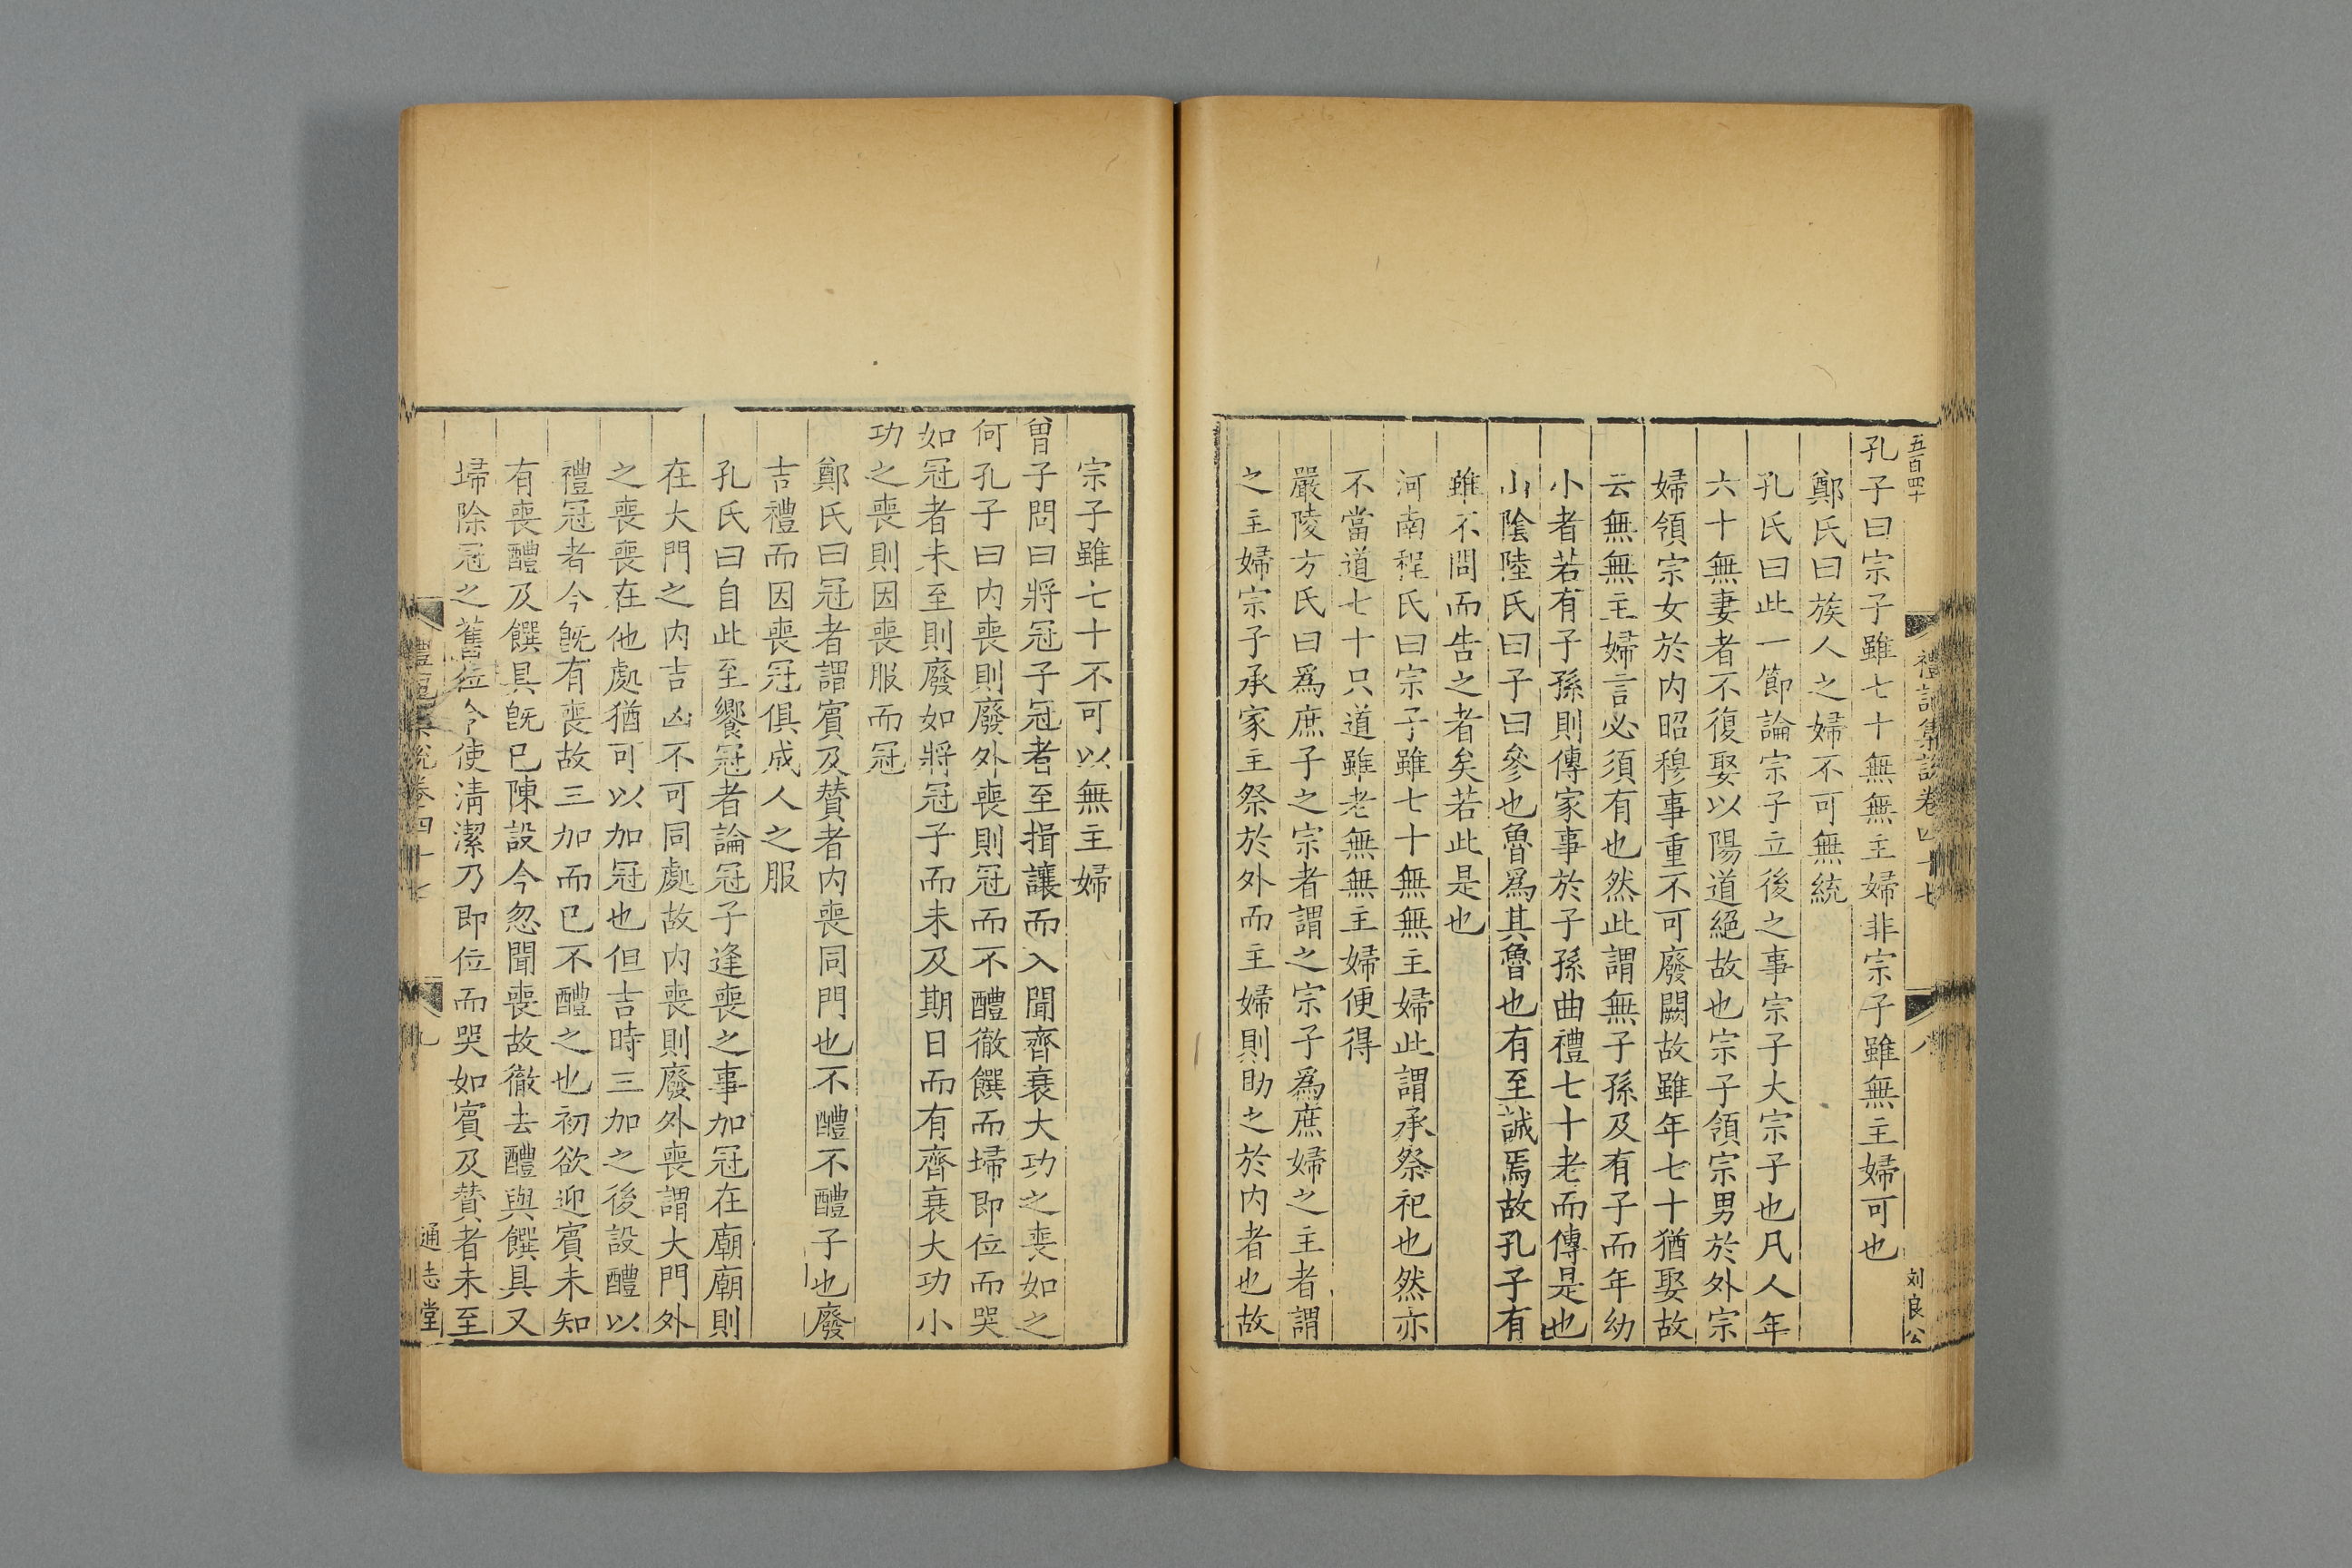 五百四十
禮記集說卷四十七
八
刘良公
孔子曰宗子雖七十無無主婦非宗子雖無主婦可也
鄭氏曰族人之婦不可無統
孔氏曰此一節論宗子立後之事宗子大宗子也凡人年
六十無妻者不復娶以陽道絕故也宗子領宗男於外宗
婦領宗女於内昭穆事重不可廢闕故雖年七十猶娶故
云無無主婦言必須有也然此謂無子孫及有子而年幼
小者若有子孫則傳家事於子孫曲禮七十老而傳是也
山陰陸氏曰子曰參也魯爲其魯也有至誠焉故孔子有
雖不問而告之者矣若此是也
河南程氏曰宗子雖七十無無主婦此謂承祭祀也然亦
不當道七十只道雖老無無主婦便得
嚴陵方氏曰爲庶子之宗者謂之宗子爲庶婦之主者謂
之主婦宗子承家主祭於外而主婦則助之於内者也故
宗子雖七十不可以無主婦
曾子問曰將冠子冠者至揖讓而入聞齊衰大功之喪如之
何孔子曰内喪則廢外喪則冠而不醴徹饌而埽即位而哭
如冠者未至則廢如將冠子而未及期日而有齊衰大功小
功之喪則因喪服而冠
鄭氏曰冠者謂賓及賛者内喪同門也不醴不醴子也廢
吉禮而因喪冠俱成人之服
孔氏曰自此至饗冠者論冠子逢喪之事加冠在廟廟則
在大門之内吉凶不可同處故内喪則廢外喪謂大門外
之喪喪在他處猶可以加冠也但吉時三加之後設醴以
禮冠者今旣有喪故三加而已不醴之也初欲迎賓未知
有喪醴及饌具旣已陳設今忽聞喪故徹去醴與饌具又
埽除冠之舊位令使清潔乃即位而哭如賓及賛者未至
禮記集說卷四十七
九
通志堂